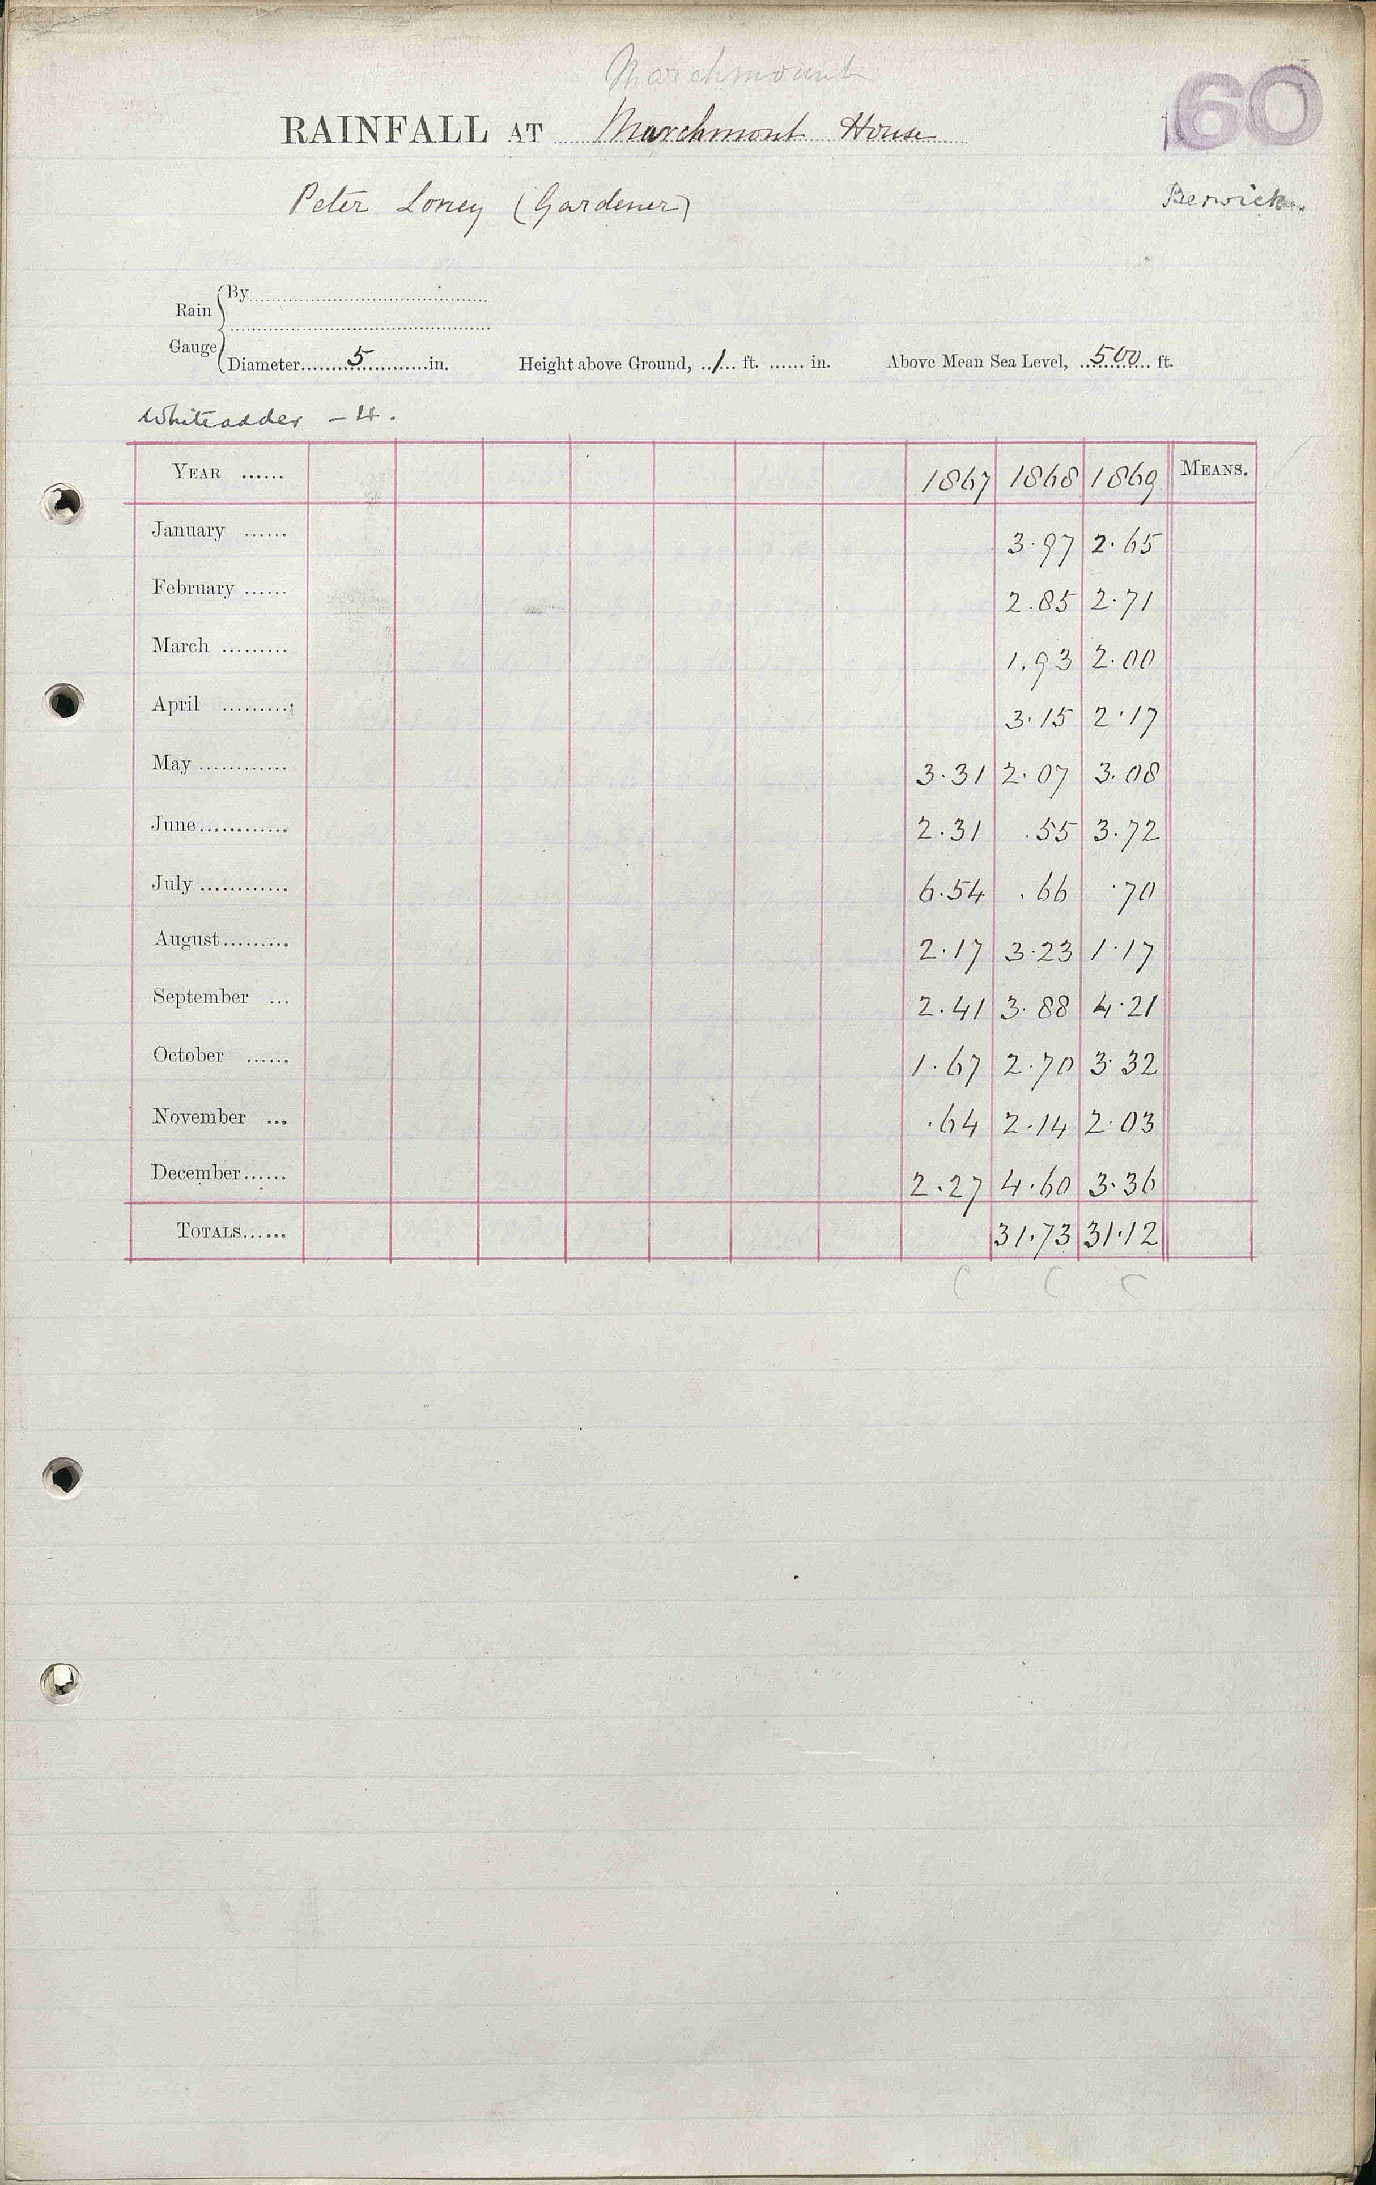 Marchmount
60
RAINFALL AT Marchmont House
Peter Loney (Gardener)
Berwick.
Rain Gauge
By
Diameter 5 in. Height above Ground, 1 ft. in. Above Mean Sea Level, 500 ft.
Whiteadder - 4.
YEAR 1867 1868 1869 MEANS.
January 3.97 2.65
February 2.85 2.71
March 1.93 2.00
April 3.15 2.17
May 3.31 2.07 3.08
June 2.31 .55 3.72
July 6.54 .66 .70
August 2.17 3.23 1.17
September 2.41 3.88 4.21
October 1.67 2.70 3.32
November .64 2.14 2.03
December 2.27 4.60 3.36
TOTALS 31.73 31.12
C C C